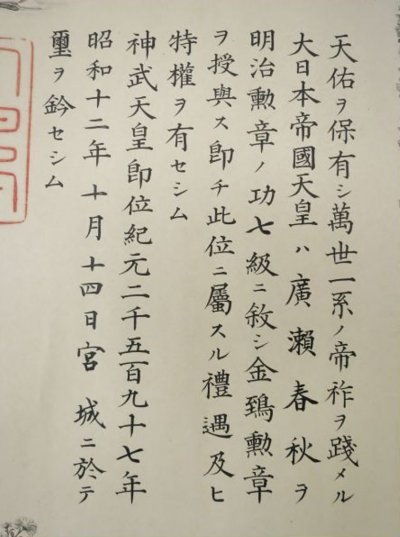 天佑ヲ保有シ萬世一系ノ帝祚ヲ踐メル
大日本帝國天皇ハ廣瀨春秋ヲ
明治勲章ノ功七級ニ敘シ金鵄勲章
ヲ授與ス卽チ此位ニ屬スル禮遇及ヒ
特權ヲ有セシム
神武天皇卽位紀元二千五百九十七年
昭和十二年十月十四日宮城ニ於テ
璽ヲ鈐セシム